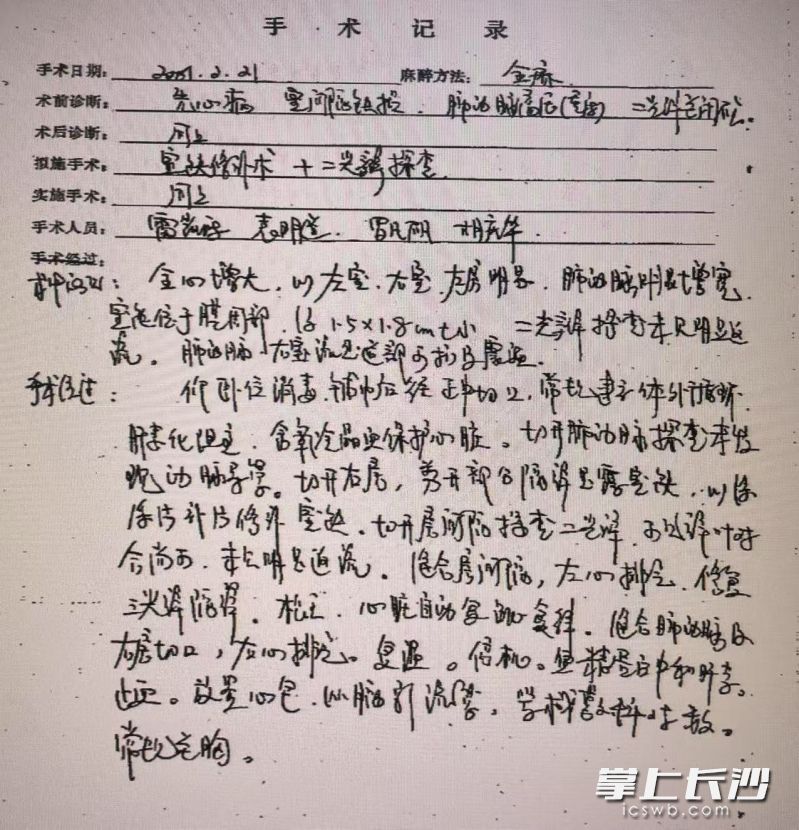 手术记录
手术日期: 2001.2.21 麻醉方法: 全麻
术前诊断: 先心病 室间隔缺损. 肺动脉高压(重度) 二尖瓣关闭不全.
术后诊断: 同上
拟施手术: 室缺修补术 + 二尖瓣探查
实施手术: 同上
手术人员: 袁明道. 胡庆华.
手术经过:
术中所见: 全心增大, 以左室、右室、左房明显. 肺动脉明显增宽.
室缺位于膜周部, 约1.5×1.8cm大小 二尖瓣探查未见明显返
流. 肺动脉、右室流出道部可扪及震颤.
手术经过: 仰卧位消毒、铺巾后经正中切口, 常规建立体外循环.
肝素化阻主, 含氧冷晶血保护心脏。切开肺动脉探查未发
现动脉导管。切开右房, 剪开部分隔瓣显露室缺, 以涤
纶片补片修补室缺. 切开房间隔探查二尖瓣, 可见瓣叶对
合尚可, 未见明显返流。缝合房间隔, 左心排气. 修复
三尖瓣隔瓣。松主, 心脏自动复跳. 缝合肺动脉及
右房切口, 左心排气。复温。停机。鱼精蛋白中和肝素。
止血。放置心包、纵膈引流管, 器械敷料对数。
常规关胸。
掌上长沙
icswb.com